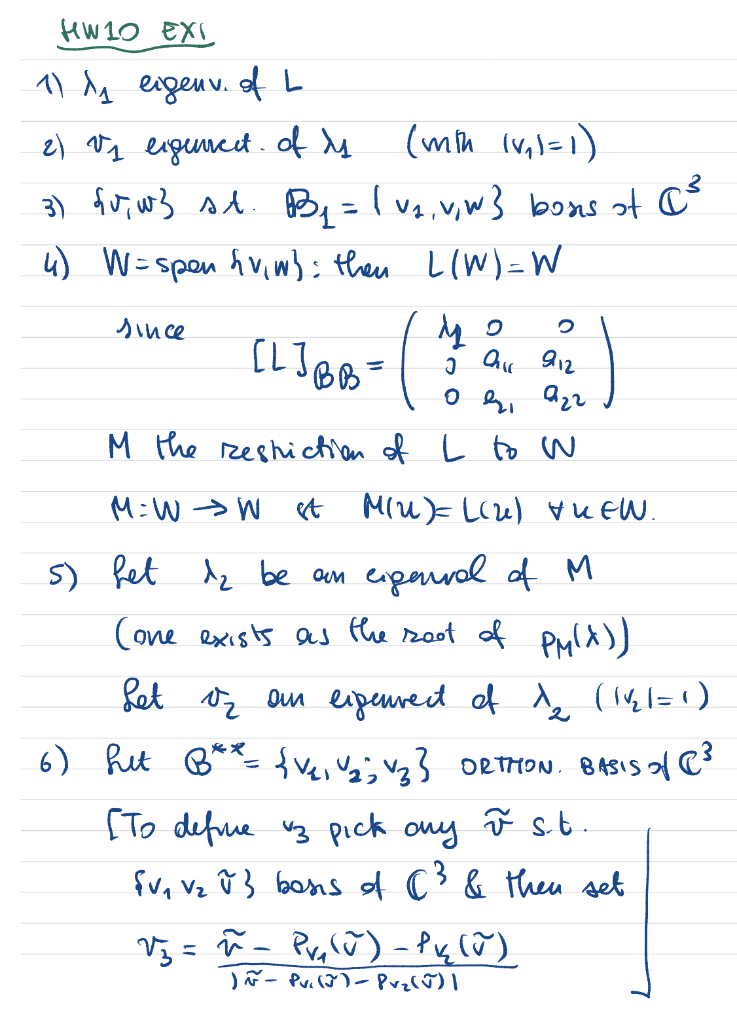 HW10 EX1
1) λ₁ eigenv. of L
2) v₁ eigenvect. of λ₁ (with |v₁|=1)
3) {v,w} s.t. B₁ = { v₁,v,w} basis of ℂ³
4) W = span {v,w}: then L(W)=W
since [L]_BB = ( λ₁ 0 0
0 a₁₁ a₁₂
0 a₂₁ a₂₂ )
M the restriction of L to W
M:W → W st M(u)= L(u) ∀ u ∈ W.
5) Let λ₂ be an eigenval of M
(one exists as the root of p_M(λ))
Let v₂ an eigenvect of λ₂ (|v₂|=1)
6) Let B** = {v₁, v₂, v₃} ORTHON. BASIS of ℂ³
[To define v₃ pick any ṽ s.t.
{v₁ v₂ ṽ} basis of ℂ³ & then set
v₃ = ṽ − P_v₁(ṽ) − P_v₂(ṽ)
|ṽ − P_v₁(ṽ) − P_v₂(ṽ)| ]